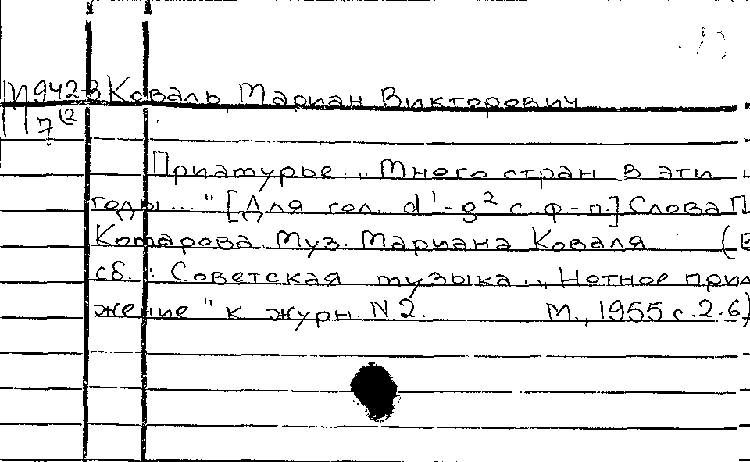 М942-3 Коваль, Мариан Викторович
7(2
Приамурье. „Много стран в эти
годы..." [Для гол. d¹-g² с ф-п.] Слова П
Комарова. Муз. Мариана Коваля (В
сб.: Советская музыка. „Нотное прил
жение" к журн. N2. М., 1955 с. 2-6)